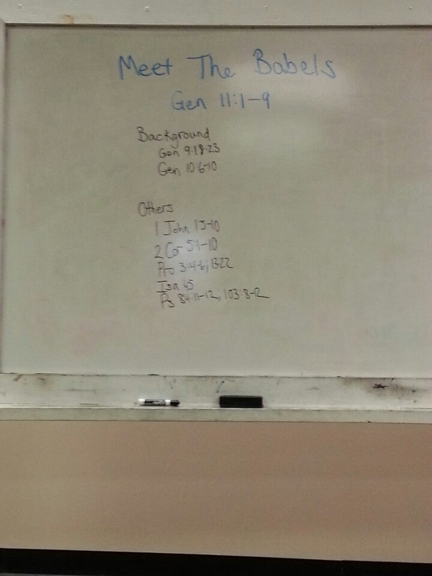 Meet The Babels
Gen 11:1-9
Background
Gen 9:18-23
Gen 10:6-10
Others
1 John 1:5-10
2 Cor 5:1-10
Pro
Isa 45
Ps 84:11-12, 103:8-12